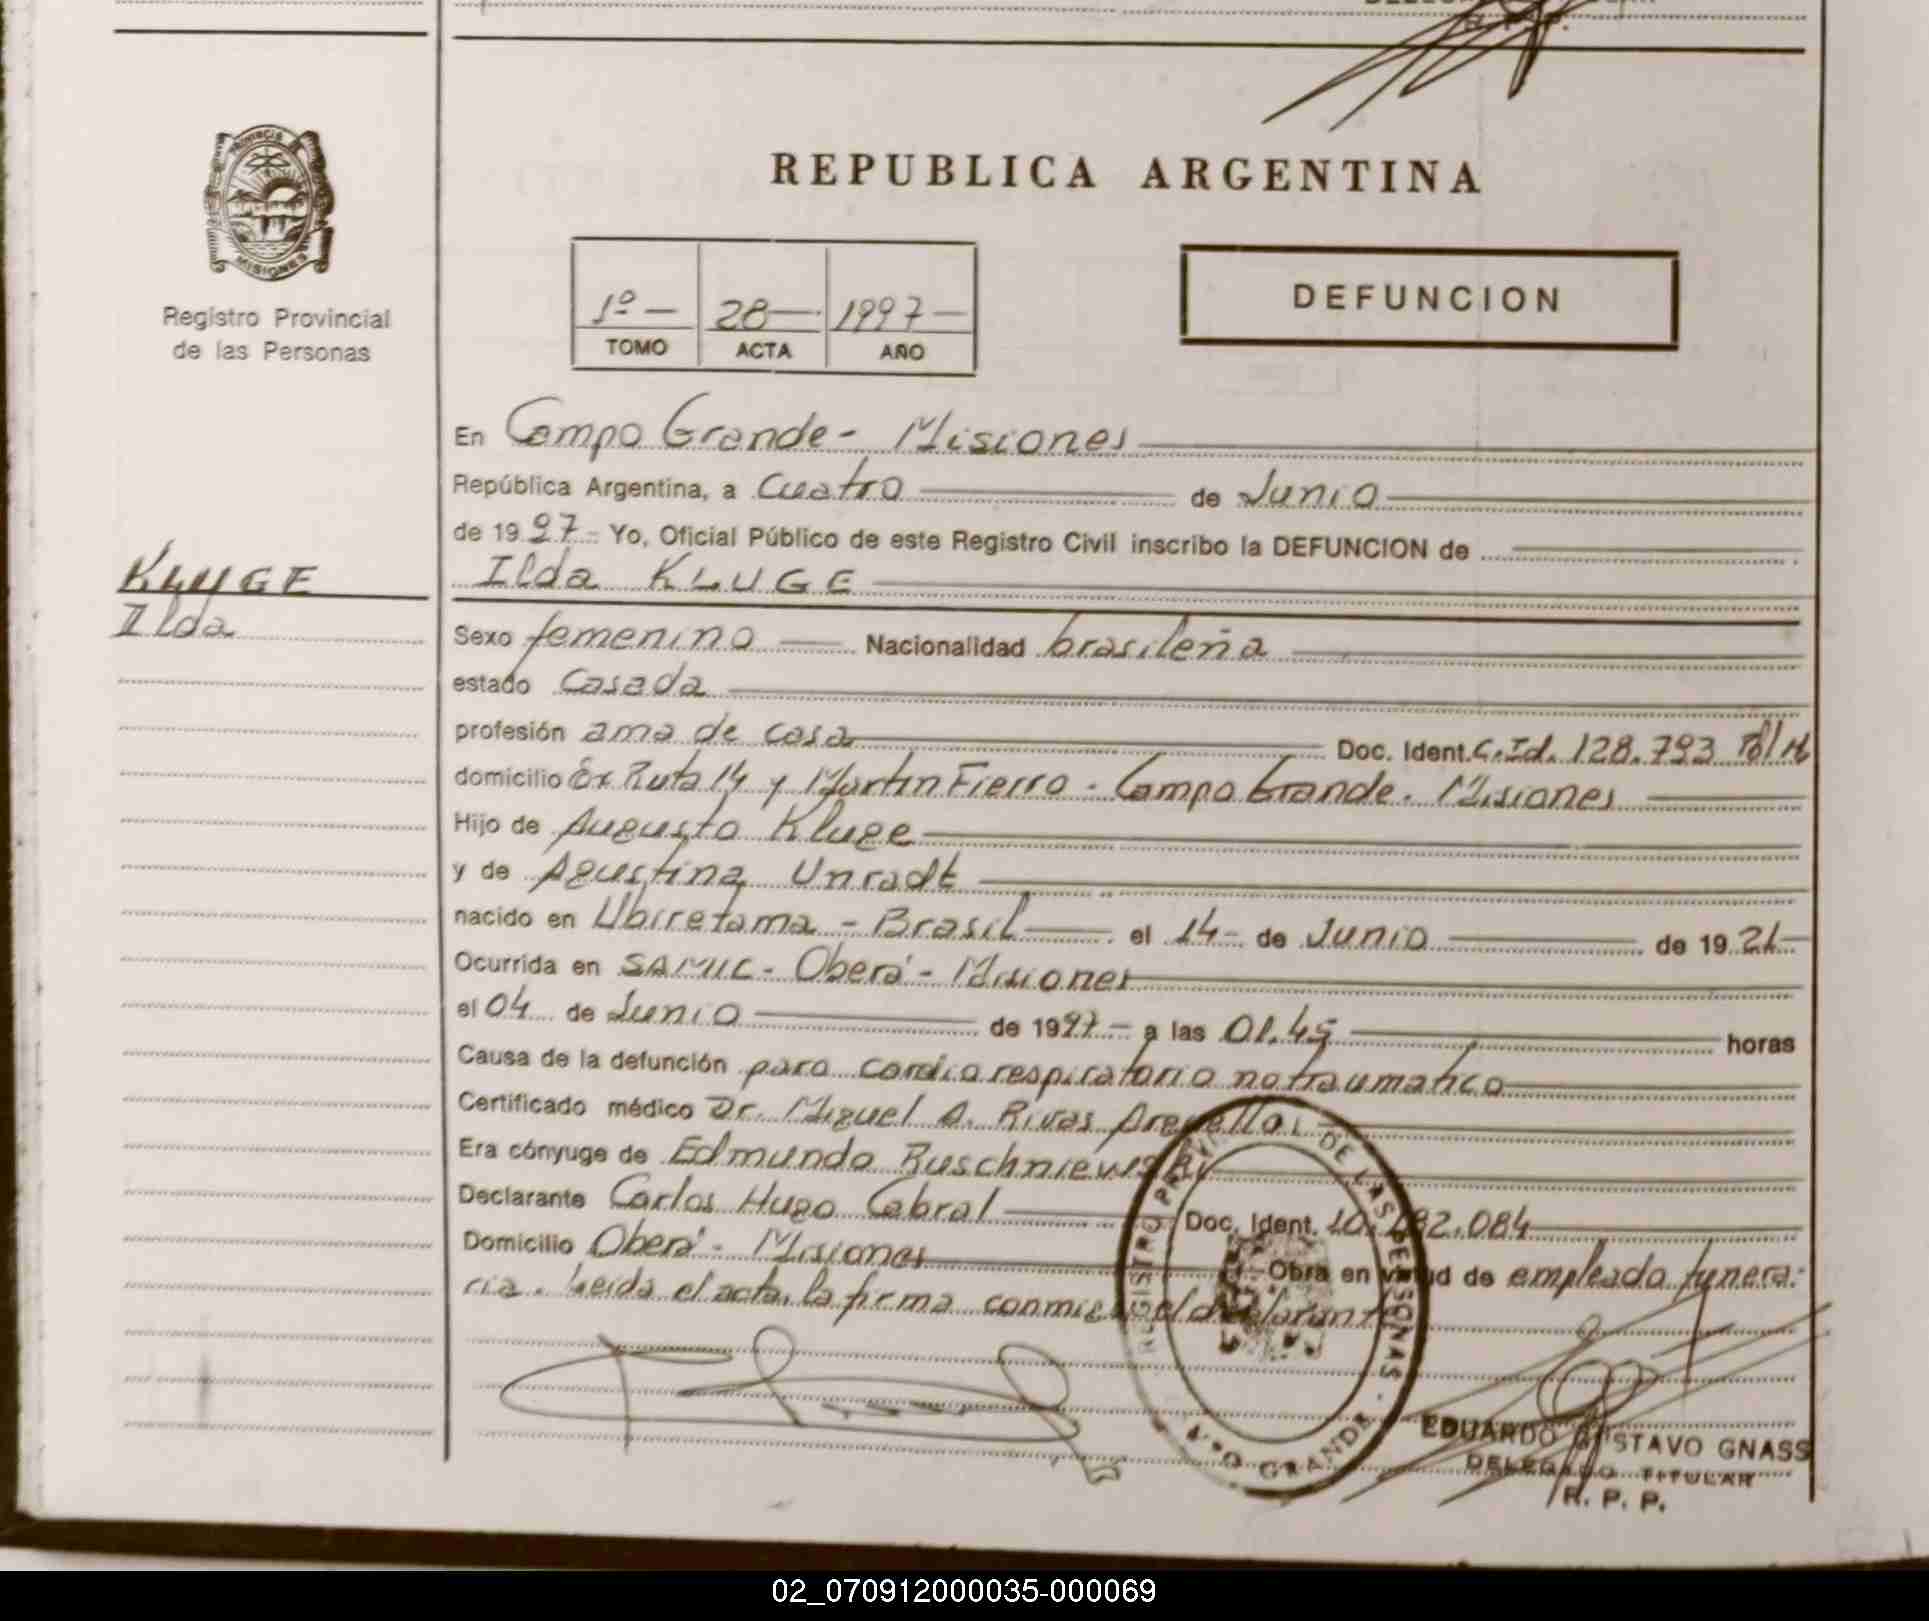 REPUBLICA ARGENTINA
PROVINCIA DE MISIONES
Registro Provincial
de las Personas
1º — 28 — 1997 —
TOMO ACTA AÑO
DEFUNCION
En Campo Grande - Misiones
República Argentina, a cuatro de Junio
de 1997 - Yo, Oficial Público de este Registro Civil inscribo la DEFUNCION de
KLUGE
Ilda
Ilda KLUGE
Sexo femenino Nacionalidad brasileña
estado casada
profesión ama de casa Doc. Ident. C.Id. 128.793 Pol M
domicilio Ex Ruta 14 y Martín Fierro - Campo Grande - Misiones
Hijo de Augusto Kluge
y de Agustina Unradt
nacido en Ubirretama - Brasil el 14 - de Junio de 1921
Ocurrida en SAMIC - Oberá - Misiones
el 04 de Junio de 1997 - a las 01.45 horas
Causa de la defunción paro cardio respiratorio no traumatico
Certificado médico Dr. Miguel A. Rivas
Era cónyuge de Edmundo Ruschniewski
Declarante Carlos Hugo Cabral Doc. Ident. 10. 82.084
Domicilio Oberá - Misiones Obra en virtud de empleado funera-
ria. Leida el acta, la firma conmigo el declarante
REGISTRO PROVINCIAL DE LAS PERSONAS
GRANDE
EDUARDO GUSTAVO GNASS
DELEGADO TITULAR
R. P. P.
02_070912000035-000069